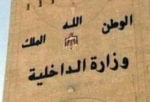 الوطن الله الملك
وزارة الداخلية